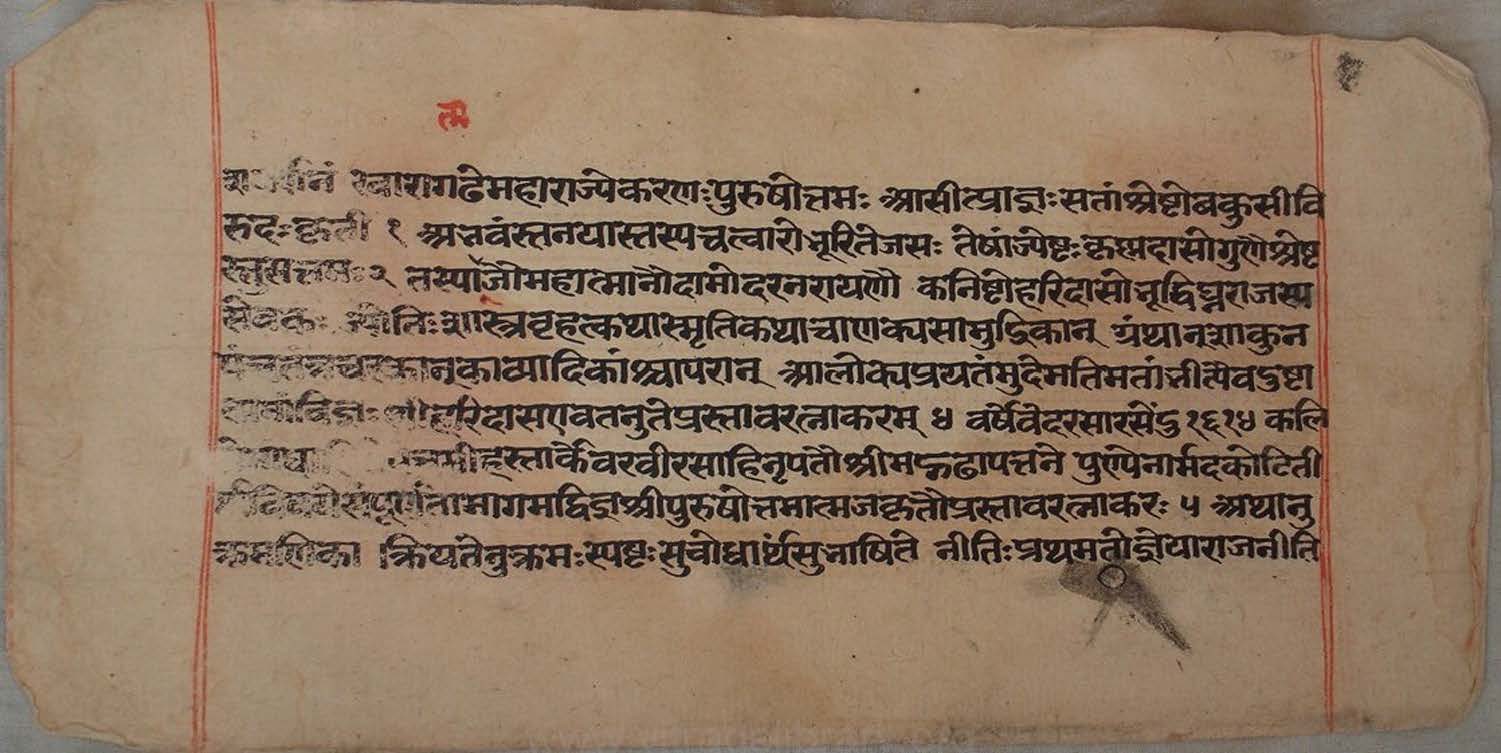 त्म
खारागढेमहाराज्येकरणःपुरुषोत्तमः आसीत्प्राज्ञःसतांश्रेष्टोबकुसीवि
रुदःकृती १ अभवंस्तनयास्तस्यचत्वारोभूरितेजसः तेषांज्येष्टःकृष्णदासोगुणैश्रेष्ट
२ तस्यानौमहात्मानौदामोदरनरायणौ कनिष्टोहरिदासोभूद्विघ्नराजस्य
सेवकः ज्योतिःशास्त्रवृहत्कथास्मृतिकथाचाणक्यसामुद्रिकान् ग्रंथान्शाकुन
काव्यादिकांश्चापरान् आलोक्यप्रयतंमुदेमतिमतांनीत्यैवदुष्टा
हरिदासएवतनुतेप्रस्तावरत्नाकरम् ४ वर्षेवेदरसारसेंदु १६१४ कलि
हस्तार्केवरवीरसाहिनृपतौश्रीमफ्रढापत्तने पुण्येनार्मदकोटिती
संपूर्णतामागमद्विज्ञश्रीपुरुषोत्तमात्मजकृतौप्रस्तावरत्नाकरः ५ अथानु
क्रमणिका क्रियतेनुक्रमःस्पष्टःसुबोधार्थसुभाषिते नीतिःप्रथमतोज्ञेयाराजनीति